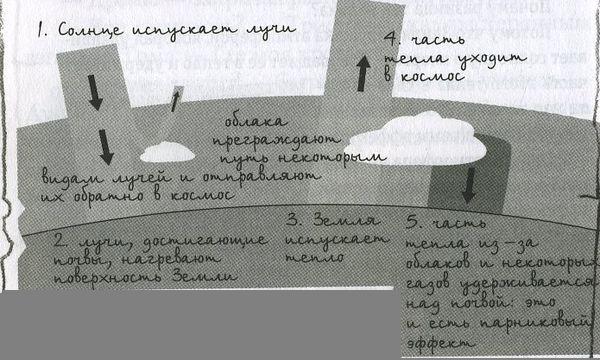 1. Солнце испускает лучи
4. часть
тепла уходит
в космос
облака
преграждают
путь некоторым
видам лучей и отправляют
их обратно в космос
2. лучи, достигающие
почвы, нагревают
поверхность Земли
3. Земля
испускает
тепло
5. часть
тепла из-за
облаков и некоторых
газов удерживается
над почвой: это
и есть парниковый
эффект